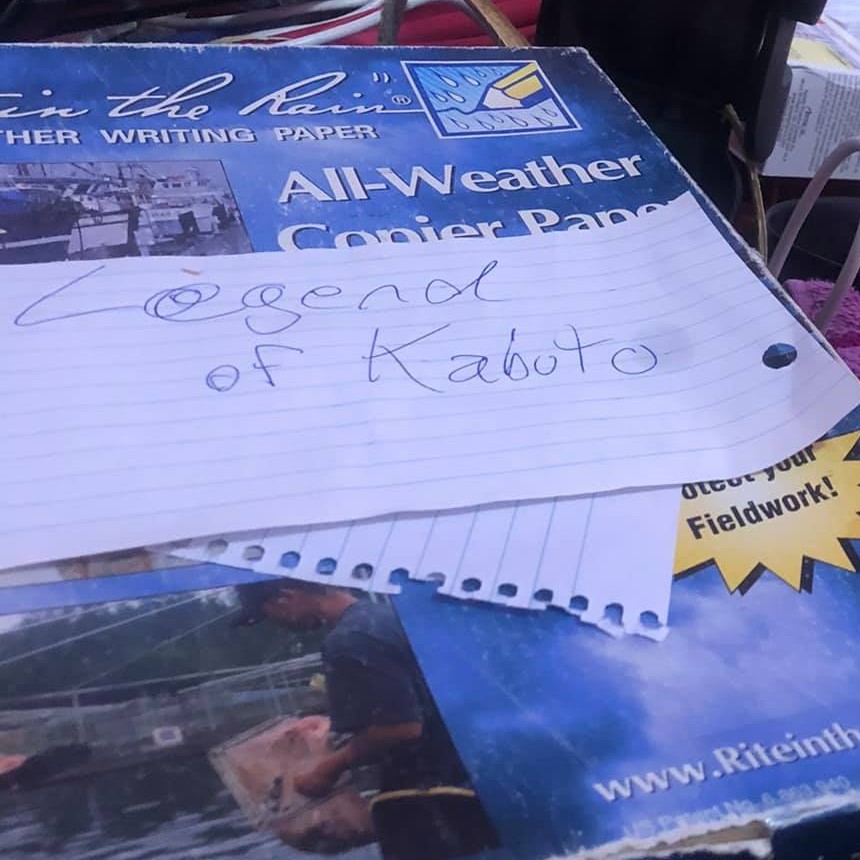 in the Rain"®
THER WRITING PAPER
All-Weather
Copier Pape
Legend
of Kabuto
otect your
Fieldwork!
www.Riteinth